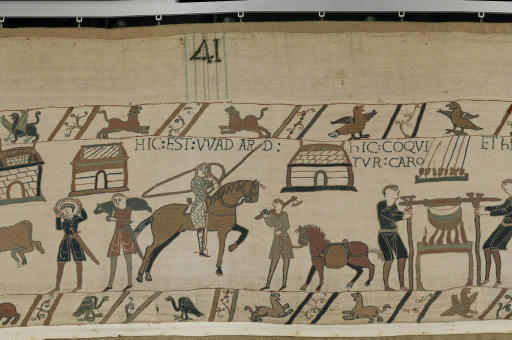 41
HIC:EST:VVADARD:
hIC:COQVI
TVR:CARO
ETh